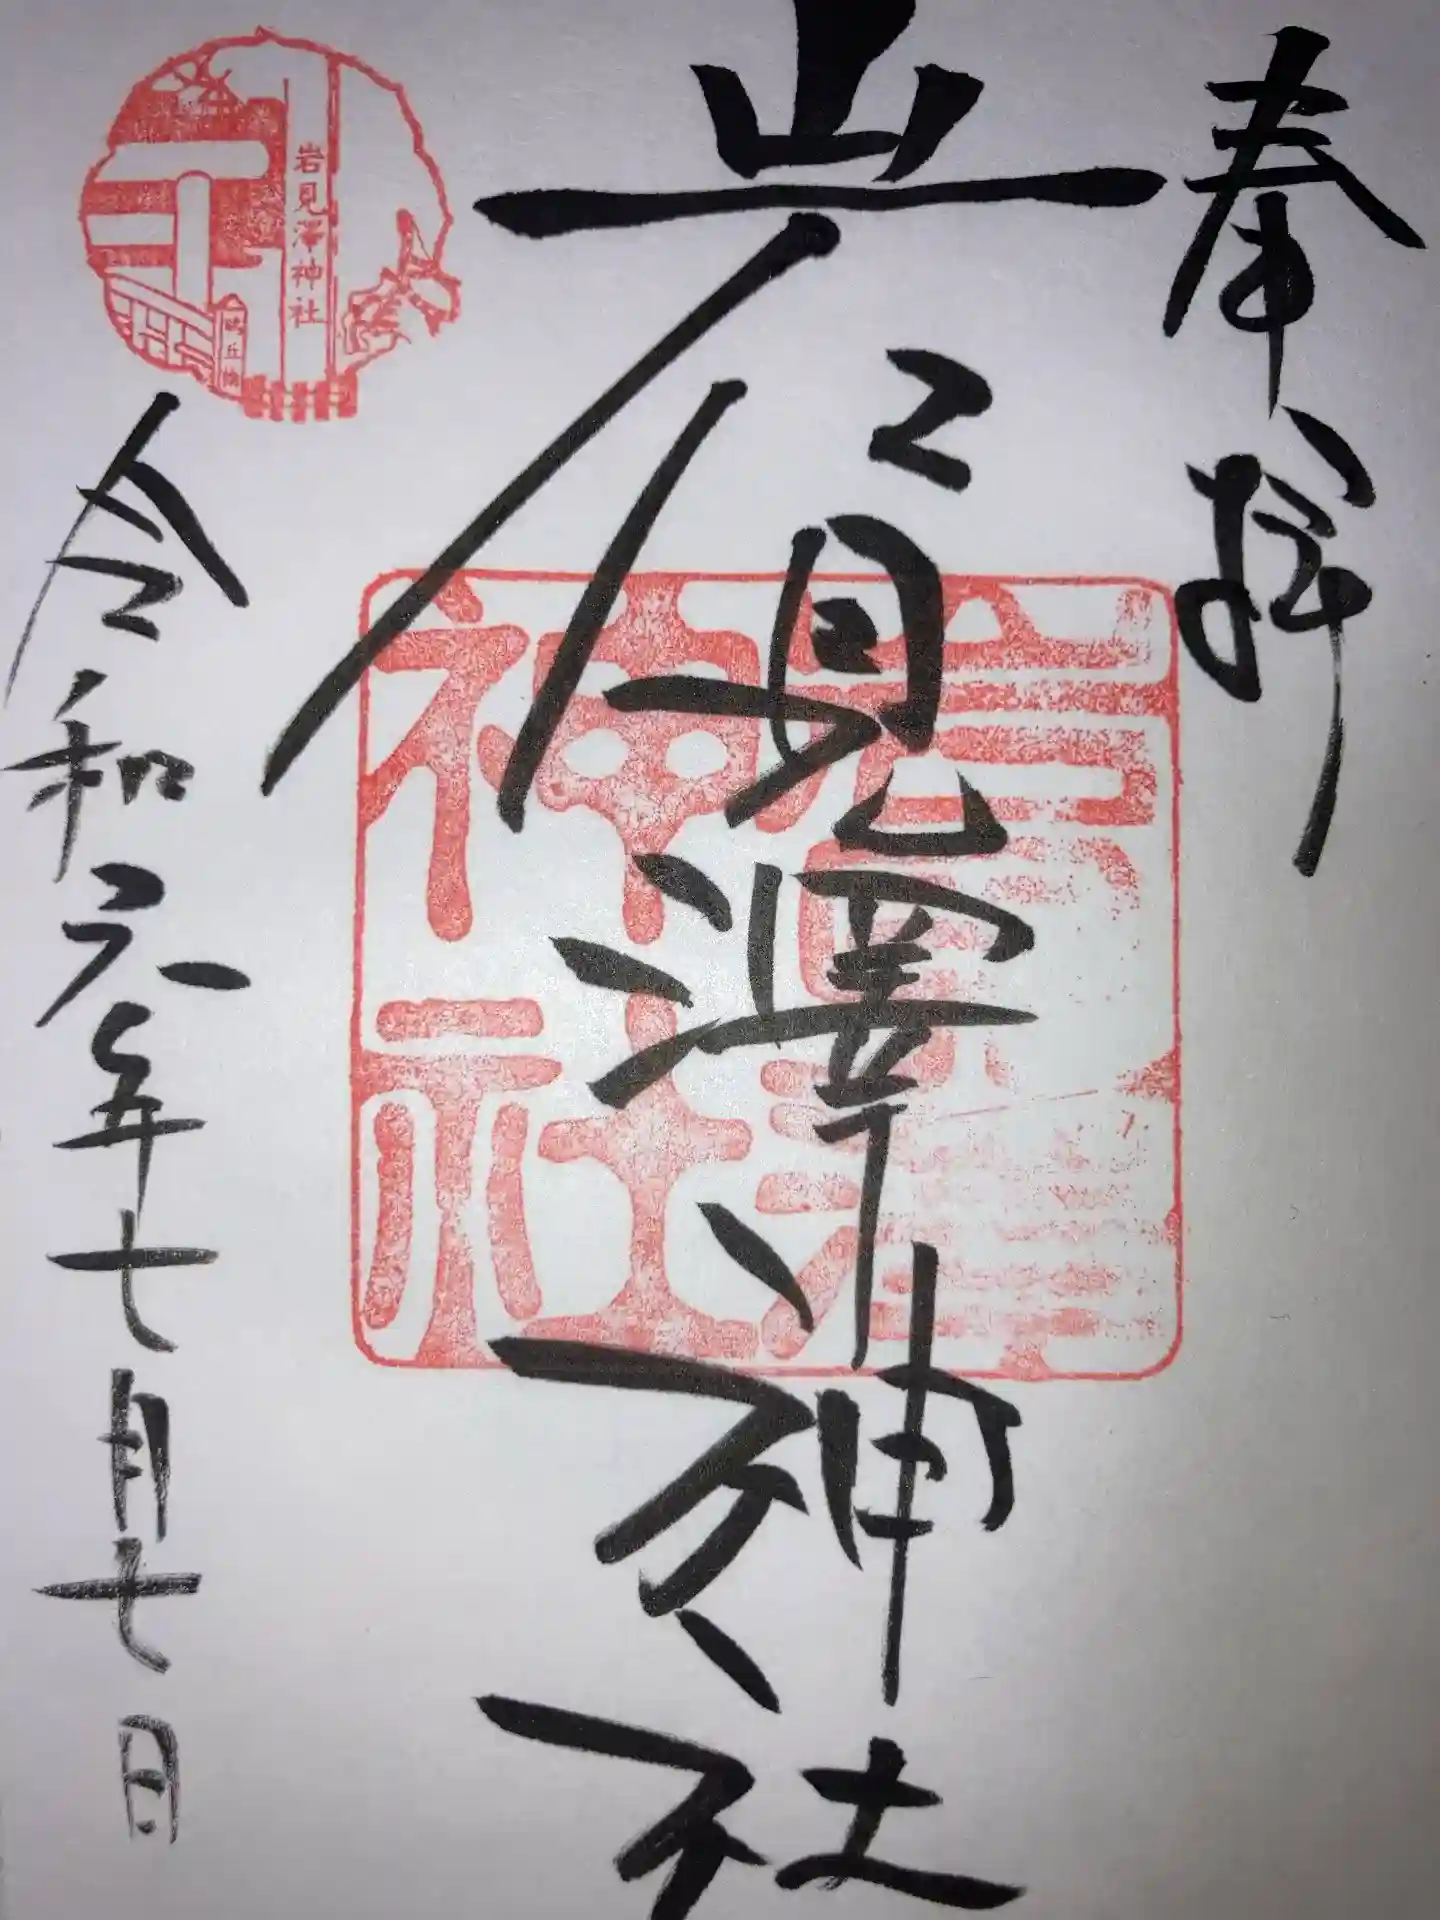 奉拝
岩見澤神社
岩見澤神社
令和元年七月七日
岩見澤神社